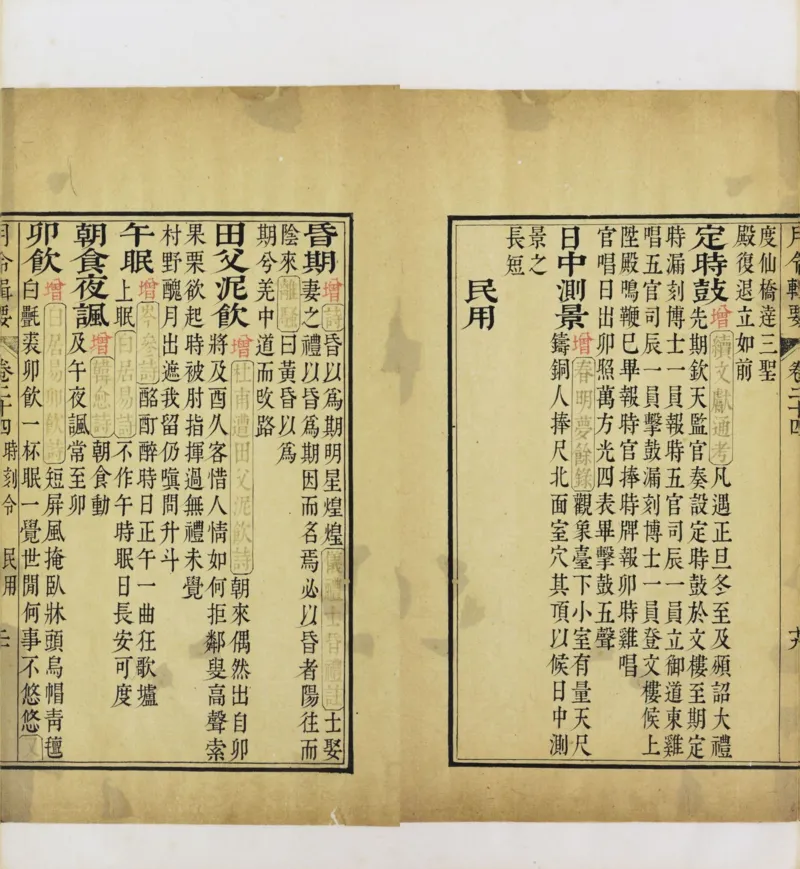 月令輯要 卷二十四
度仙橋達三聖
殿復退立如前
定時鼓 增 續文獻通考 凡遇正旦冬至及頒詔大禮
先期欽天監官奏設定時鼓於文樓至期定
時漏刻博士一員報時五官司辰一員立御道東雞
唱五官司辰一員擊鼓漏刻博士一員登文樓候上
陞殿鳴鞭已畢報時官捧時牌報卯時雞唱
官唱日出卯照萬方光四表畢擊鼓五聲
日中測景 增 春明夢餘錄 觀象臺下小室有量天尺
鑄銅人捧尺北面室穴其頂以候日中測
景之
長短
民用
昏期 增 詩 昏以爲期明星煌煌 儀禮士昏禮註 士娶
妻之禮以昏爲期因而名焉必以昏者陽往而
陰來 離騷 曰黃昏以爲
期兮羌中道而改路
田父泥飲 增 杜甫遭田父泥飲詩 朝來偶然出自卯
將及酉久客惜人情如何拒鄰叟高聲索
果栗欲起時被肘指揮過無禮未覺
村野醜月出遮我留仍嗔問升斗
午眠 增 岑參詩 酩酊醉時日正午一曲狂歌壚
上眠 白居易詩 不作午時眠日長安可度
朝食夜諷 增 韓愈詩 朝食動
及午夜諷常至卯
卯飲 增 白居易卯飲詩 短屏風掩臥牀頭烏帽青氊
白氎裘卯飲一杯眠一覺世閒何事不悠悠 又
月令輯要 卷二十四 時刻令 民用